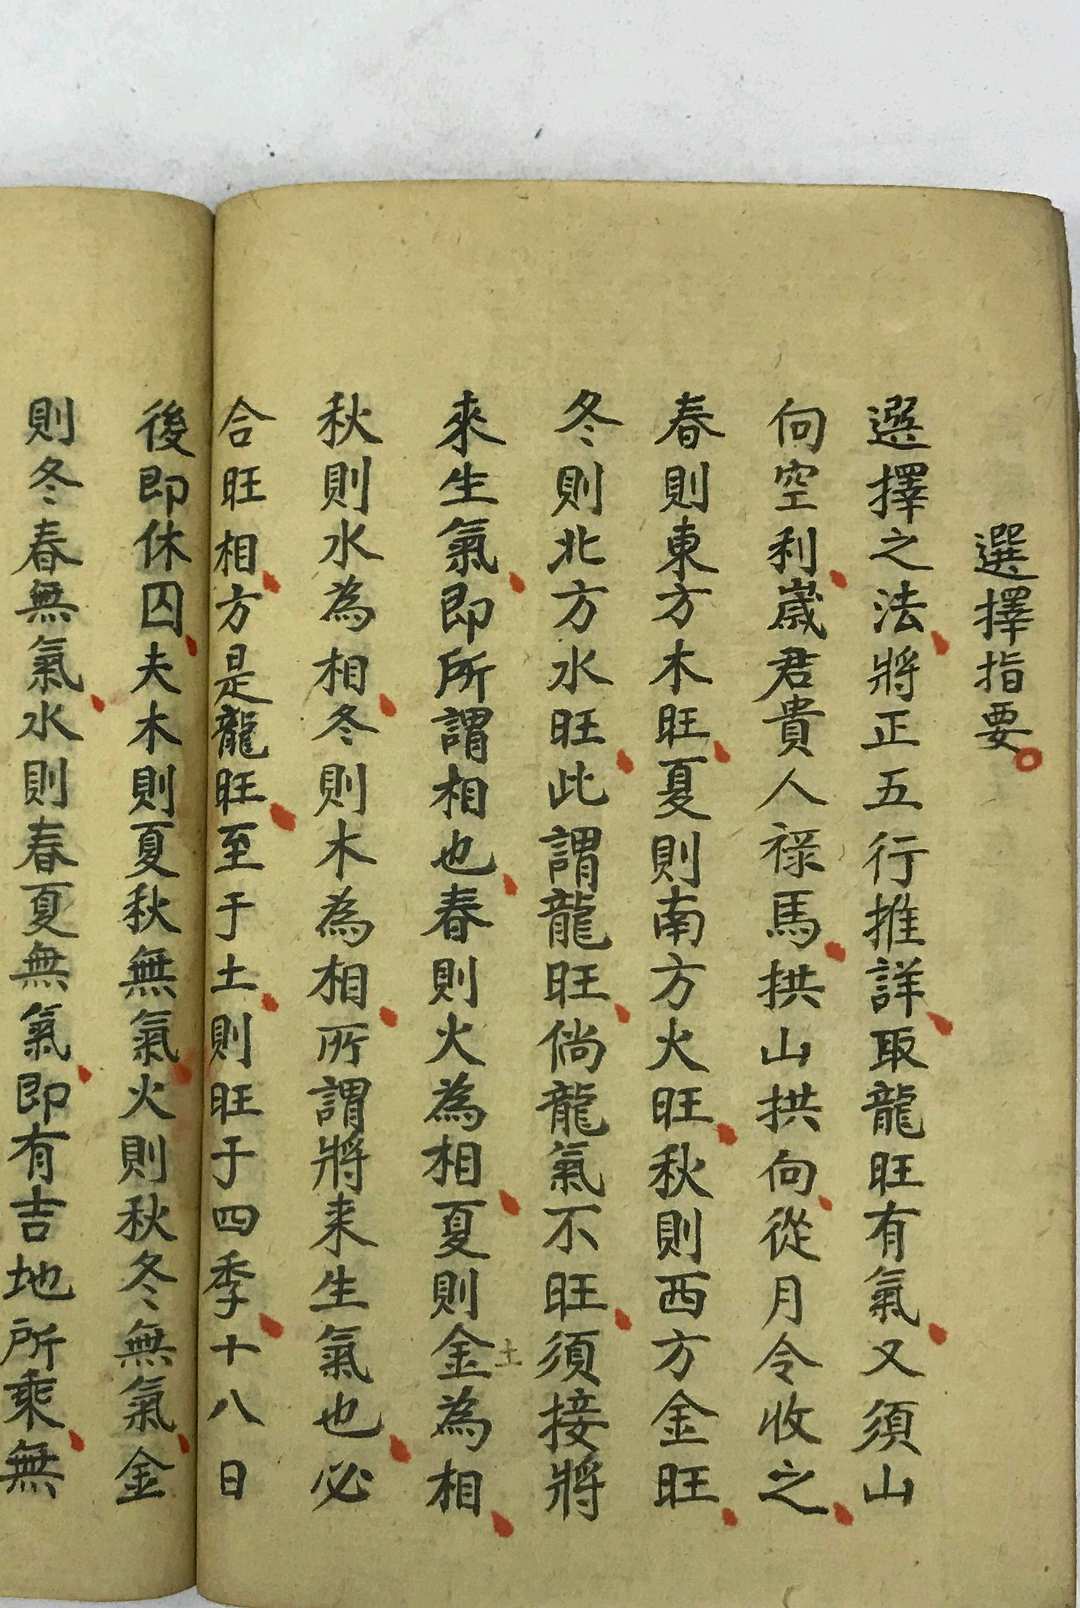 選擇指要
選擇之法將正五行推詳取龍旺有氣又須山
向空利歲君貴人祿馬拱山拱向從月令收之
春則東方木旺夏則南方火旺秋則西方金旺
冬則北方水旺此謂龍旺倘龍氣不旺須接將
來生氣即所謂相也春則火為相夏則金為相
土
秋則水為相冬則木為相所謂將来生氣也必
合旺相方是龍旺至于土則旺于四季十八日
後即休囚夫木則夏秋無氣火則秋冬無氣金
則冬春無氣水則春夏無氣即有吉地所乘無